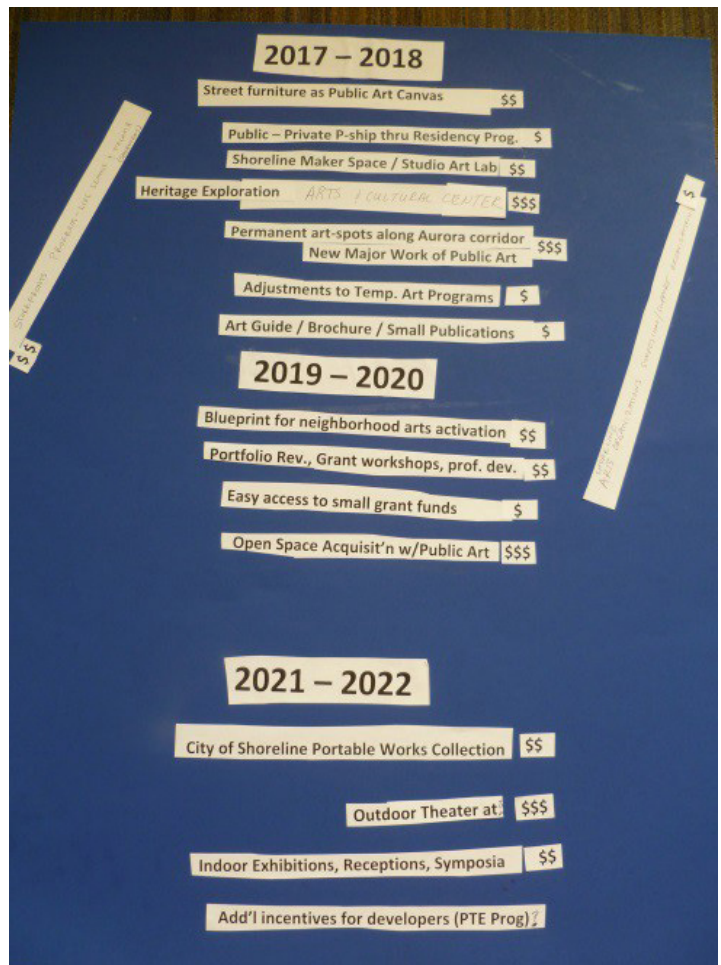 2017 – 2018
Street furniture as Public Art Canvas $$
Public – Private P-ship thru Residency Prog. $
Shoreline Maker Space / Studio Art Lab $$
Heritage Exploration ARTS & CULTURAL CENTER $$$
Permanent art-spots along Aurora corridor
New Major Work of Public Art $$$
Adjustments to Temp. Art Programs $
Art Guide / Brochure / Small Publications $
2019 – 2020
Blueprint for neighborhood arts activation $$
Portfolio Rev., Grant workshops, prof. dev. $$
Easy access to small grant funds $
Open Space Acquisit'n w/Public Art $$$
2021 – 2022
City of Shoreline Portable Works Collection $$
Outdoor Theater at: $$$
Indoor Exhibitions, Receptions, Symposia $$
Add'l incentives for developers (PTE Prog)?
$$
$
ARTS ORGANIZATIONS